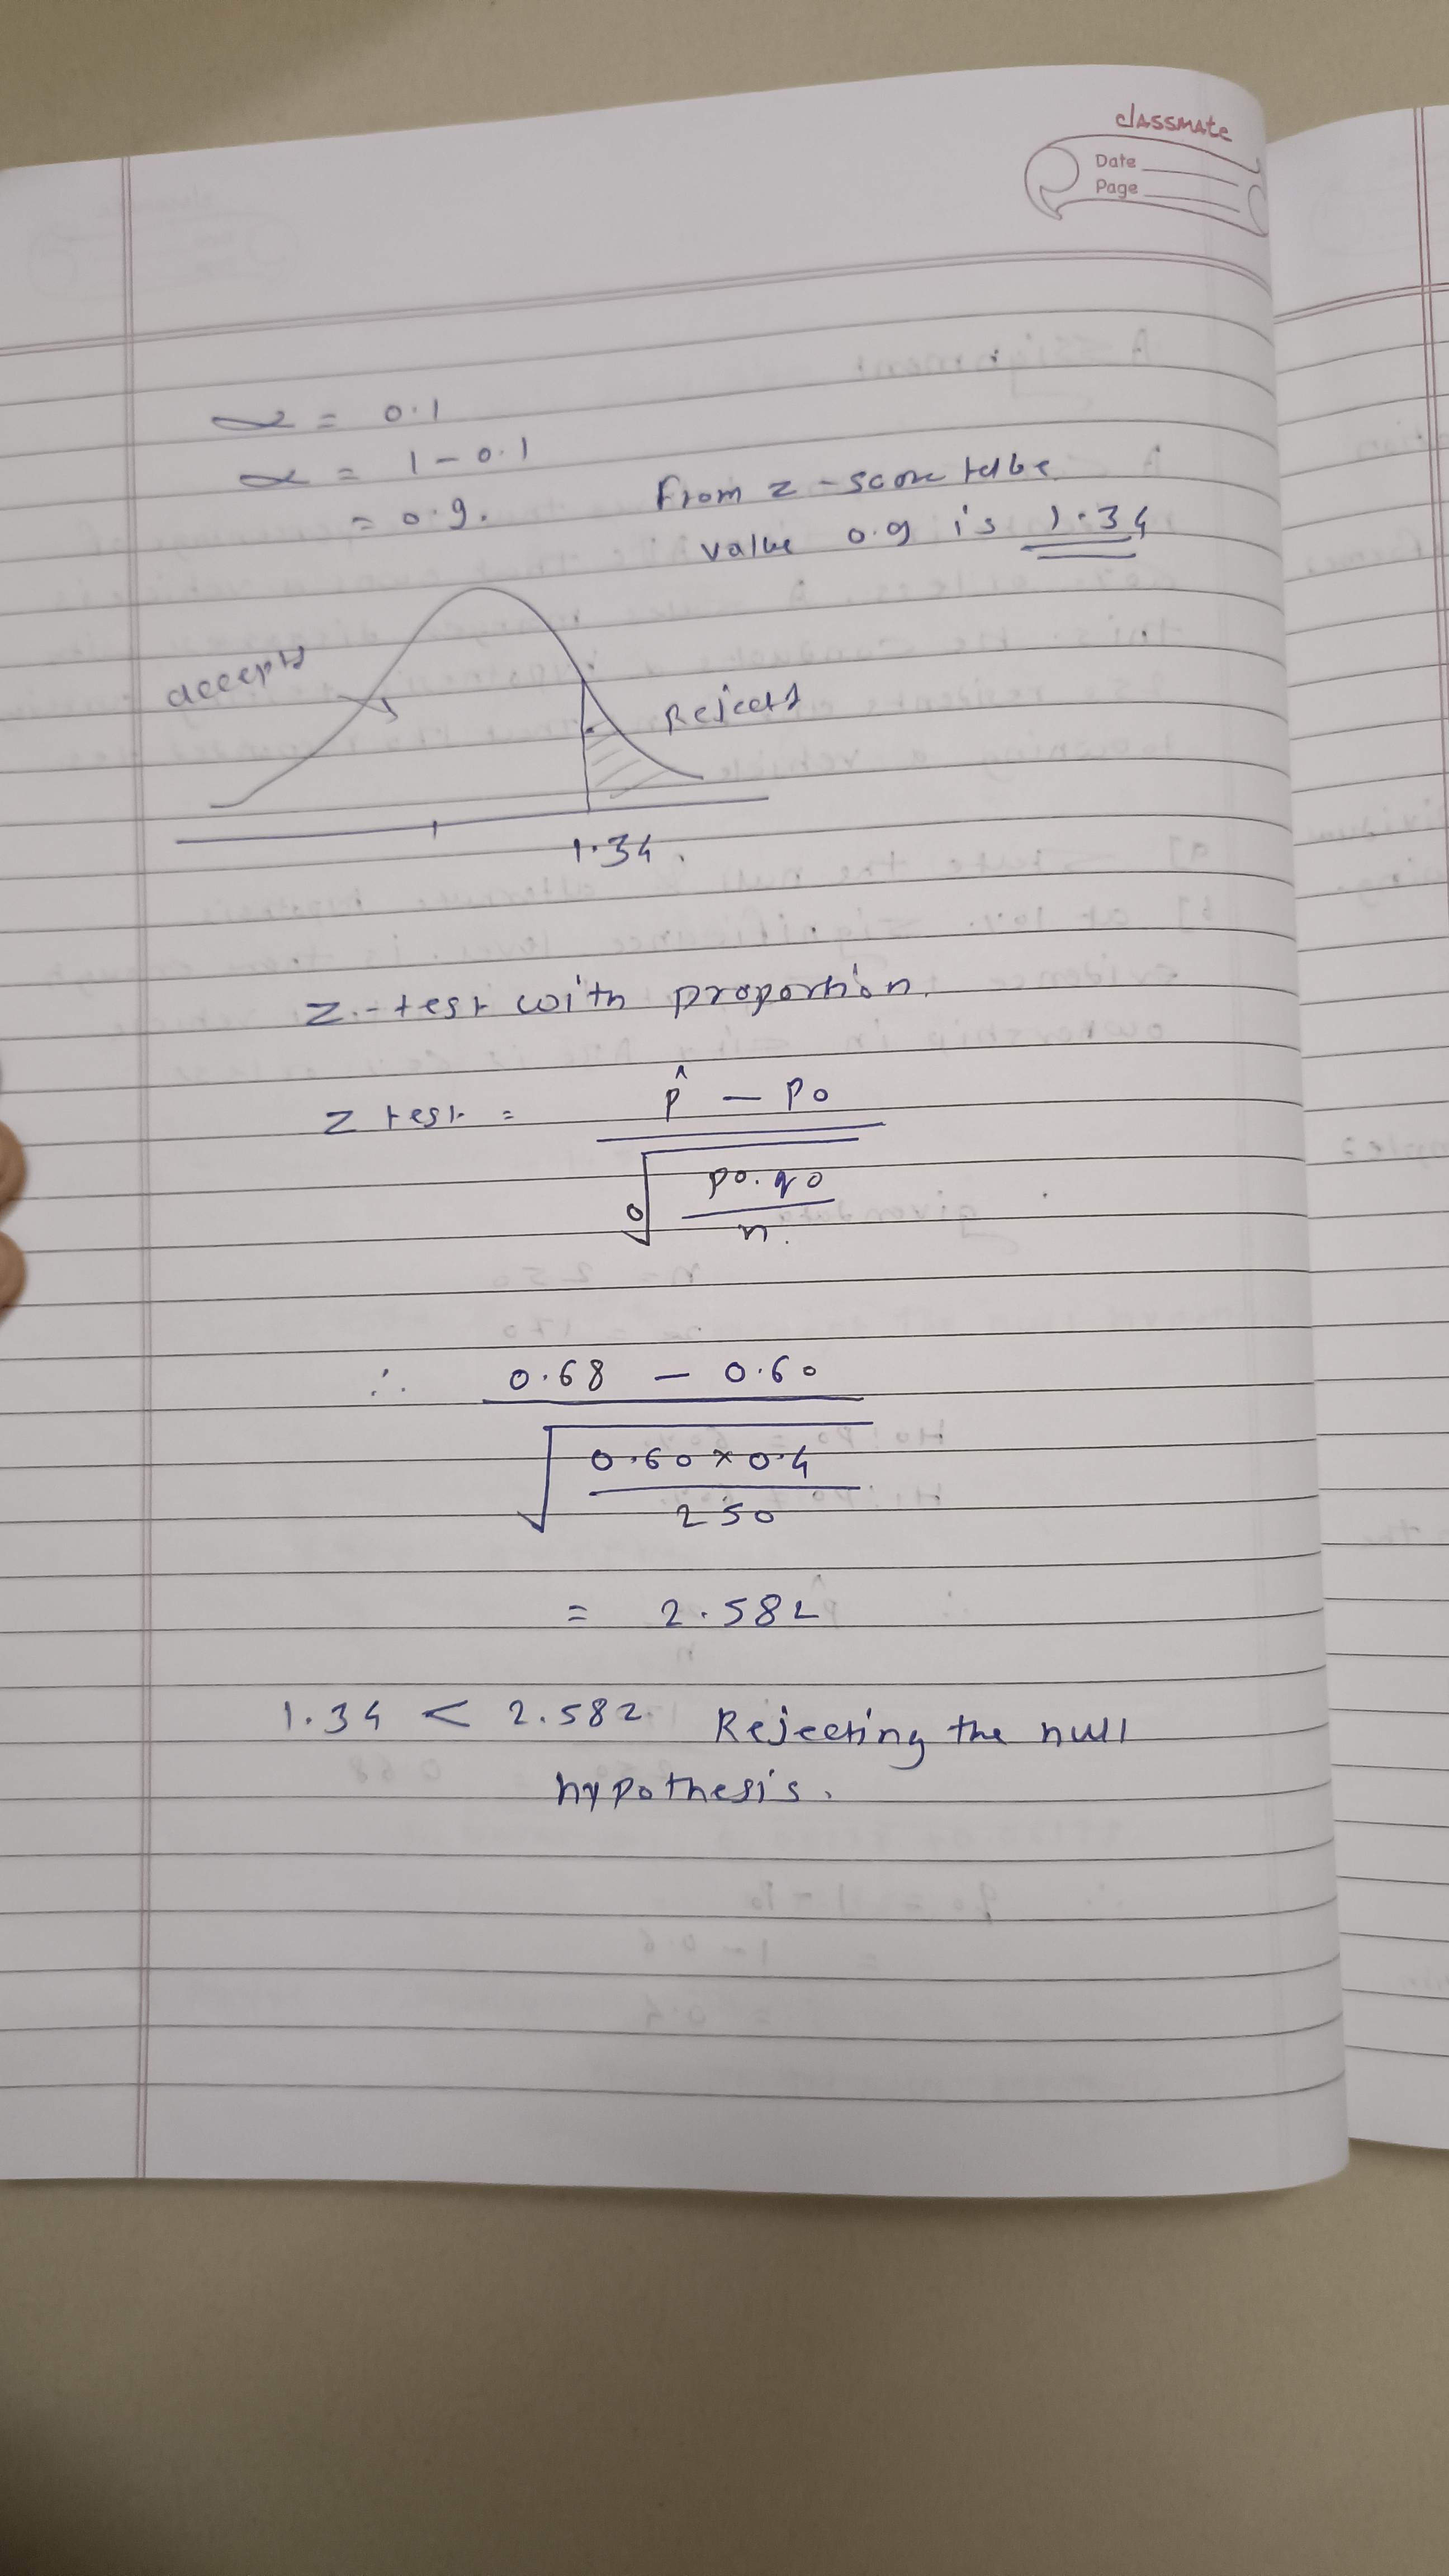 classmate
Date
Page
α = 0.1
α = 1 - 0.1
= 0.9.
From z-score
value 0.9 is 1.34
accept
Reject
1.34.
Z-test with proportion.
Z test = p̂ - p0
√ p0.q0
n.
∴ 0.68 - 0.60
√ 0.60 × 0.4
250
= 2.582
1.34 < 2.582. Rejecting the null
hypothesis.